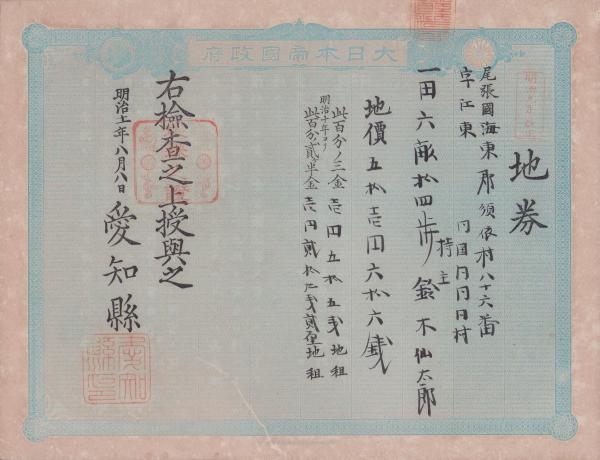 大日本帝國政府
地券
尾張國海東郡須依村八十六番
字江東
同国同郡同村
一田六畝拾四歩
持主
鈴木仙太郎
地價五拾壱円六拾六銭
此百分ノ三金壱円五拾五銭地租
明治十年ヨリ
此百分ノ貳半金壱円貳拾九銭貳厘地租
右檢査之上授與之
明治十一年八月八日
愛知縣